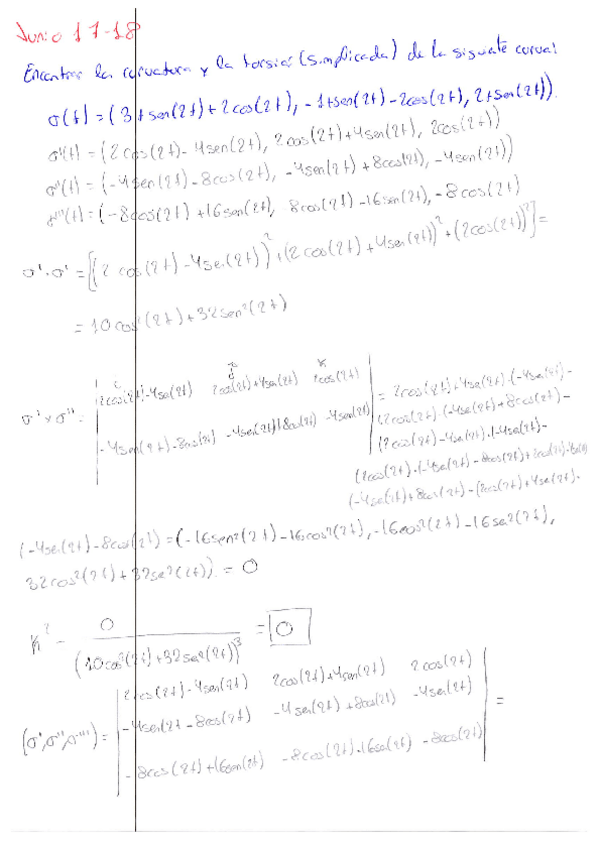 Junio 17-18
Encontrar la curvatura y la torsión (simplificada) de la siguiente curva:
σ(t) = (3+sen(2t)+2cos(2t), -1+sen(2t)-2cos(2t), 2+sen(2t))
σ'(t) = (2cos(2t)-4sen(2t), 2cos(2t)+4sen(2t), 2cos(2t))
σ''(t) = (-4sen(2t)-8cos(2t), -4sen(2t)+8cos(2t), -4sen(2t))
σ'''(t) = (-8cos(2t)+16sen(2t), 8cos(2t)-16sen(2t), -8cos(2t)
σ'·σ' = [(2cos(2t)-4sen(2t))²+(2cos(2t)+4sen(2t))²+(2cos(2t))²] =
= 10cos²(2t)+32sen²(2t)
i j k
σ'×σ'' = | 2cos(2t)-4sen(2t) 2cos(2t)+4sen(2t) 2cos(2t) | = 2cos(2t)+4sen(2t)·(-4sen(2t)-
| -4sen(2t)-8cos(2t) -4sen(2t)+8cos(2t) -4sen(2t) | (2cos(2t)·(-4sen(2t)+8cos(2t)-
(2cos(2t)-4sen(2t)·(-4sen(2t)-
(2cos(2t)·(-4sen(2t)-8cos(2t)+2cos(2t)-4sen(2t)
(-4sen(2t)+8cos(2t)-(2cos(2t)+4sen(2t)·
(-4sen(2t)-8cos(2t) = (-16sen²(2t)-16cos²(2t), -16cos²(2t)-16sen²(2t),
32cos²(2t)+32sen²(2t)) = 0
K² = 0 / (10cos²(2t)+32sen²(2t))³ = 0
(σ',σ'',σ''') = | 2cos(2t)-4sen(2t) 2cos(2t)+4sen(2t) 2cos(2t) |
| -4sen(2t-8cos(2t) -4sen(2t)+8cos(2t) -4sen(2t) | =
| -8cos(2t)+16sen(2t) -8cos(2t)-16sen(2t) -8cos(2t) |